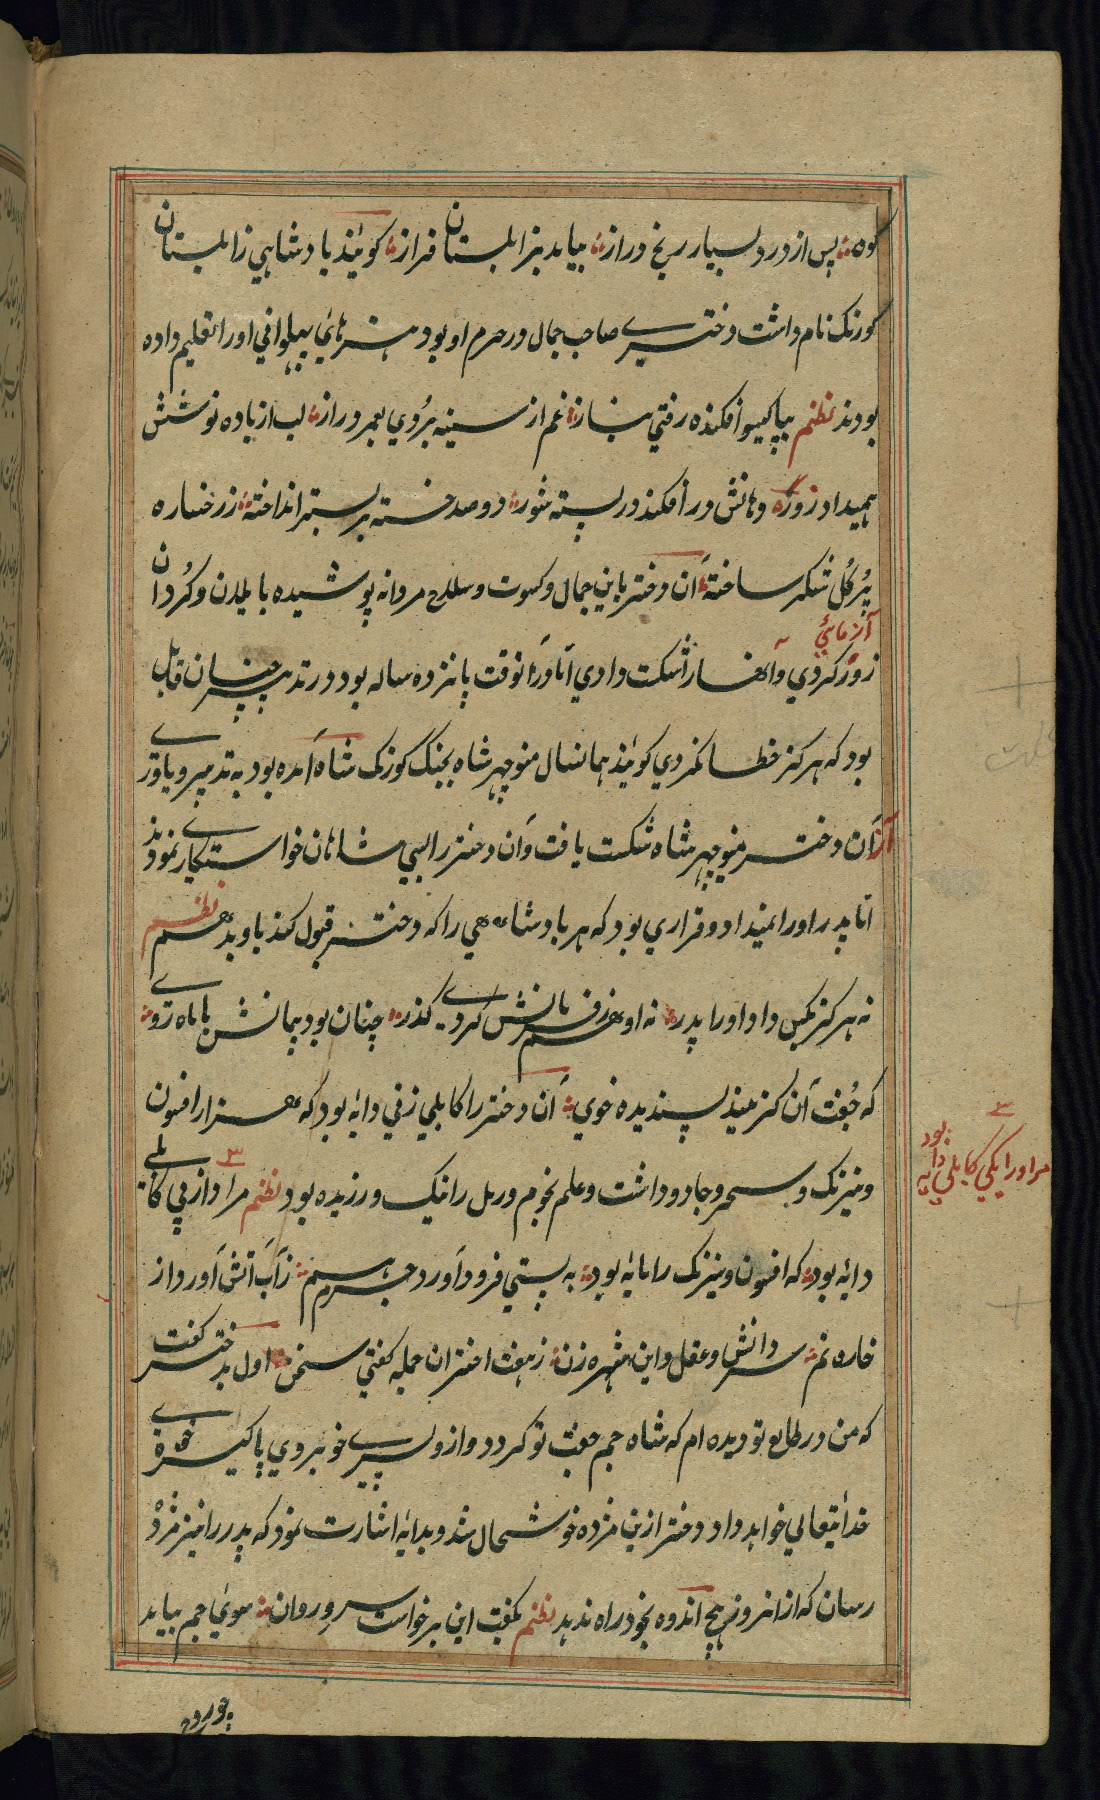 کوه پس از درد بسیار رنج دراز بیاید بزابلستان فراز کویند بادشاهی زابلستان
کورنک نام داشت دختری صاحب جمال در حرم او بود هنرهای پهلوانی او را تعلیم داده
بودند نظم بپا کیسو افکنده رفتی بناز غم از سینه بردی بعمر دراز لب از باده نوشش
همیداد زور دهانش در افکند در پسته شور دو صد خسته بر بستر انداخته ز رخساره
پر کل شکر ساخته آن دختر باین جمال و کسوت و سلاح مردانه پوشیده با یلان و کردان
آزمائی
زور کردی و آنها را شکست دادی اما در آنوقت پانزده ساله بود در تدبیر چنان قابل
بود که هرکز خطا نکردی کویند همانسال منوچهر شاه بجنک کورنک شاه آمده بود به تدبیر و یاوری
از آن دختر منوچهر شاه شکست یافت و آن دختر را بسی شاهان خواستکاری نمودند
اما پدر او را نمیداد و قراری بود که هر بادشاهی را که دختر قبول کند باو بدهم نظم
نه هرکز بکس داد او را پدر نه او هم ز فرمانش کردی کذر چنان بود پیمانش با ماه روی
که جفت آن کزیند پسندیده خوی آن دختر را کابلی زنی دایه بود که هزار افسون
و نیرنک و سحر و جادو داشت و علم نجوم و رمل را نیک ورزیده بود نظم مر او را از پی کابلی
دایه بود که افسون و نیرنک را مایه بود به پستی فرود آورد چرم ز آب آتش آورد از
خاره نم سر دانش و عقل و این شهره زن ز هفت اختران جمله کفتی سخن اول بدختر کفت
که من در طالع تو دیده ام که شاه جم جفت تو کردد و از و پسری خوبروی پاکیزه خوی
خدایتعالی خواهد داد دختر ازین مژده خوشحال شد و بدایه اشارت نمود که پدر را نیز مژده
رسان که از امروز هیچ اندوه بخود راه ندهد نظم بکفت این و برخاست سرو روان سوی جم بیاید
مر او را یکی کابلی دایه بود